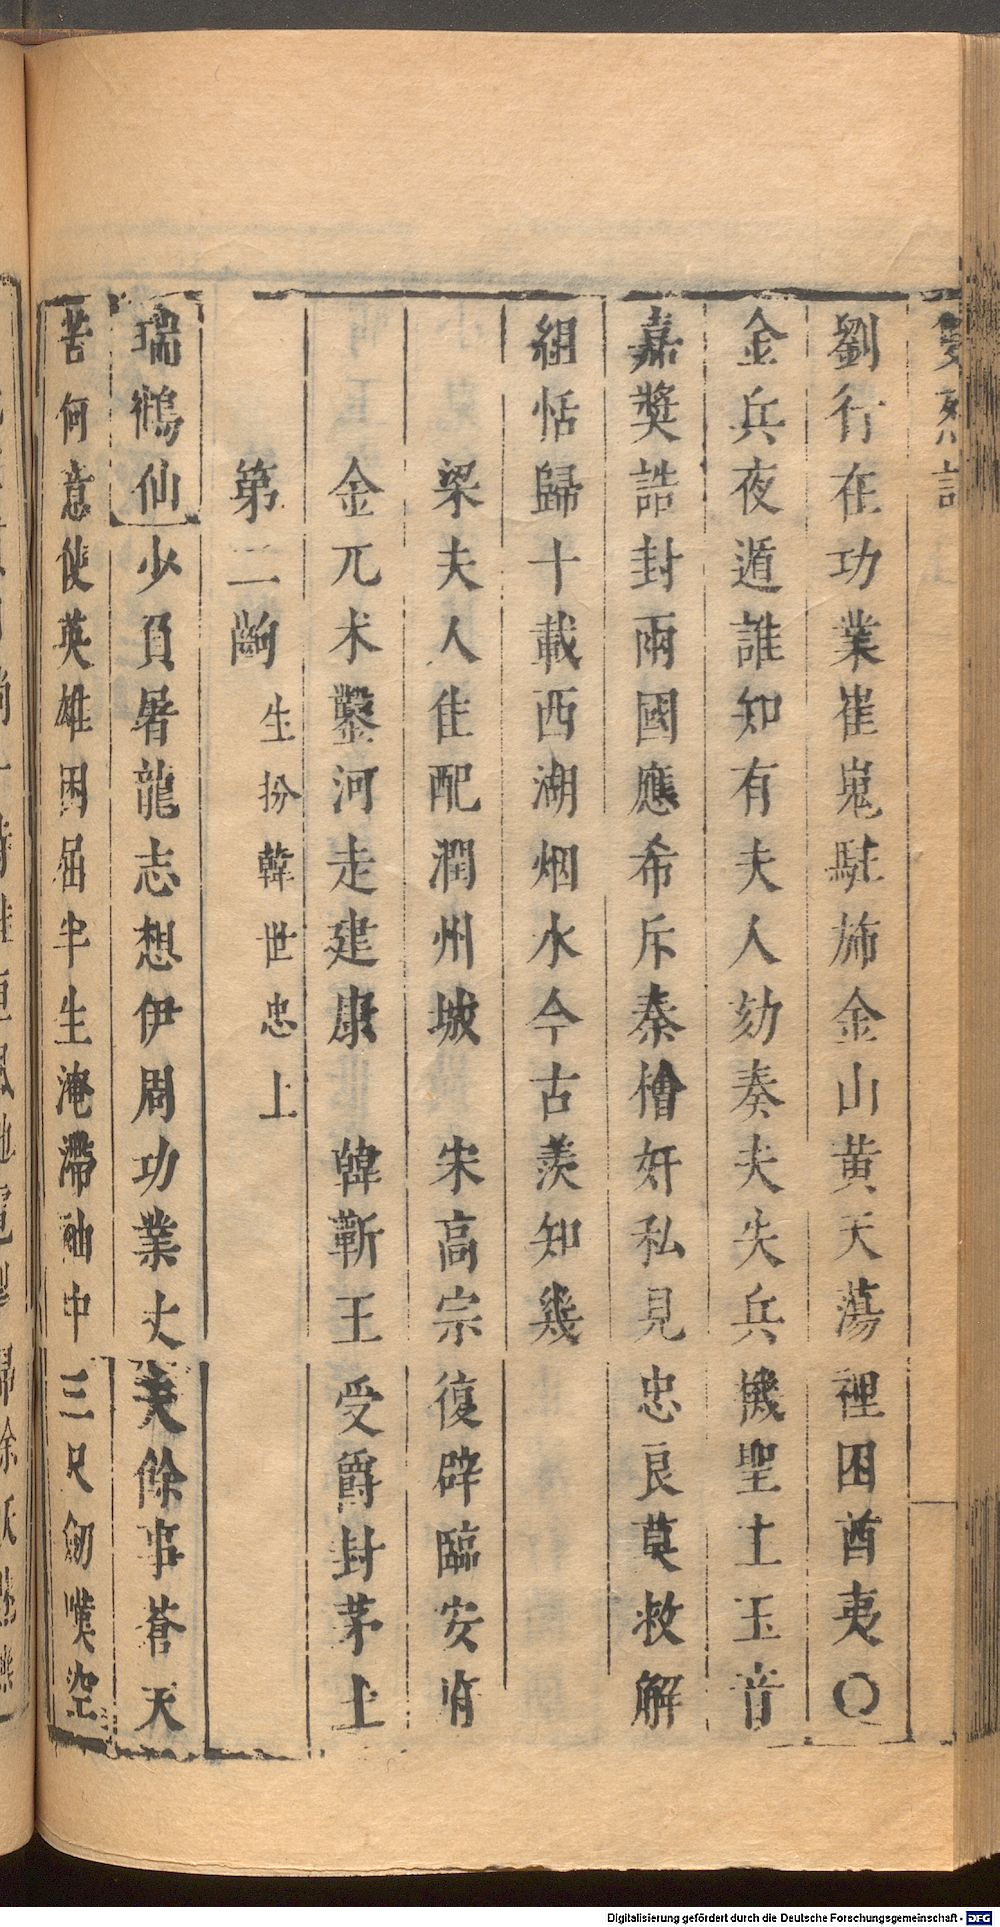 劉行在功業崔嵬駐斾金山黃天蕩裡困酋夷○
金兵夜遁誰知有夫人劾奏夫失兵機聖主玉音
嘉獎誥封兩國應希斥秦檜奸私見忠良莫救解
組恬歸十載西湖烟水今古羨知幾
梁夫人佳配潤州城 宋高宗復辟臨安省
金兀朮鑿河走建康 韓蘄王受爵封茅土
第二齣 生扮韓世忠上
瑞鶴仙 少負屠龍志想伊周功業丈夫餘事蒼天
苦何意使英雄困屈半生淹滯袖中三尺劒嘆空
Digitalisierung gefördert durch die Deutsche Forschungsgemeinschaft - DFG